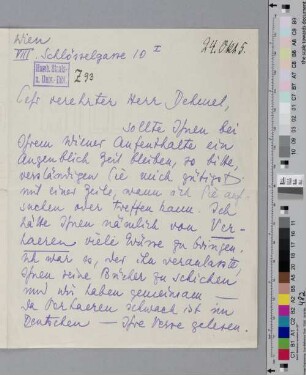 Wien
VIII Schlösselgasse 10 I
24. Okt 5.
Z 93
Sehr verehrter Herr Dehmel,
sollte Ihnen bei
Ihrem Wiener Aufenthalte ein
Augenblick Zeit bleiben, so bitte,
verständigen Sie mich gütigst
mit einer Zeile, wann ich Sie auf-
suchen oder treffen kann. Ich
hätte Ihnen nämlich von Ver-
haeren viele Grüsse zu bringen.
Ich war es, der ihn veranlasste,
Ihnen seine Bücher zu schicken
und wir haben gemeinsam —
da Verhaeren schwach ist im
Deutschen — Ihre Verse gelesen.